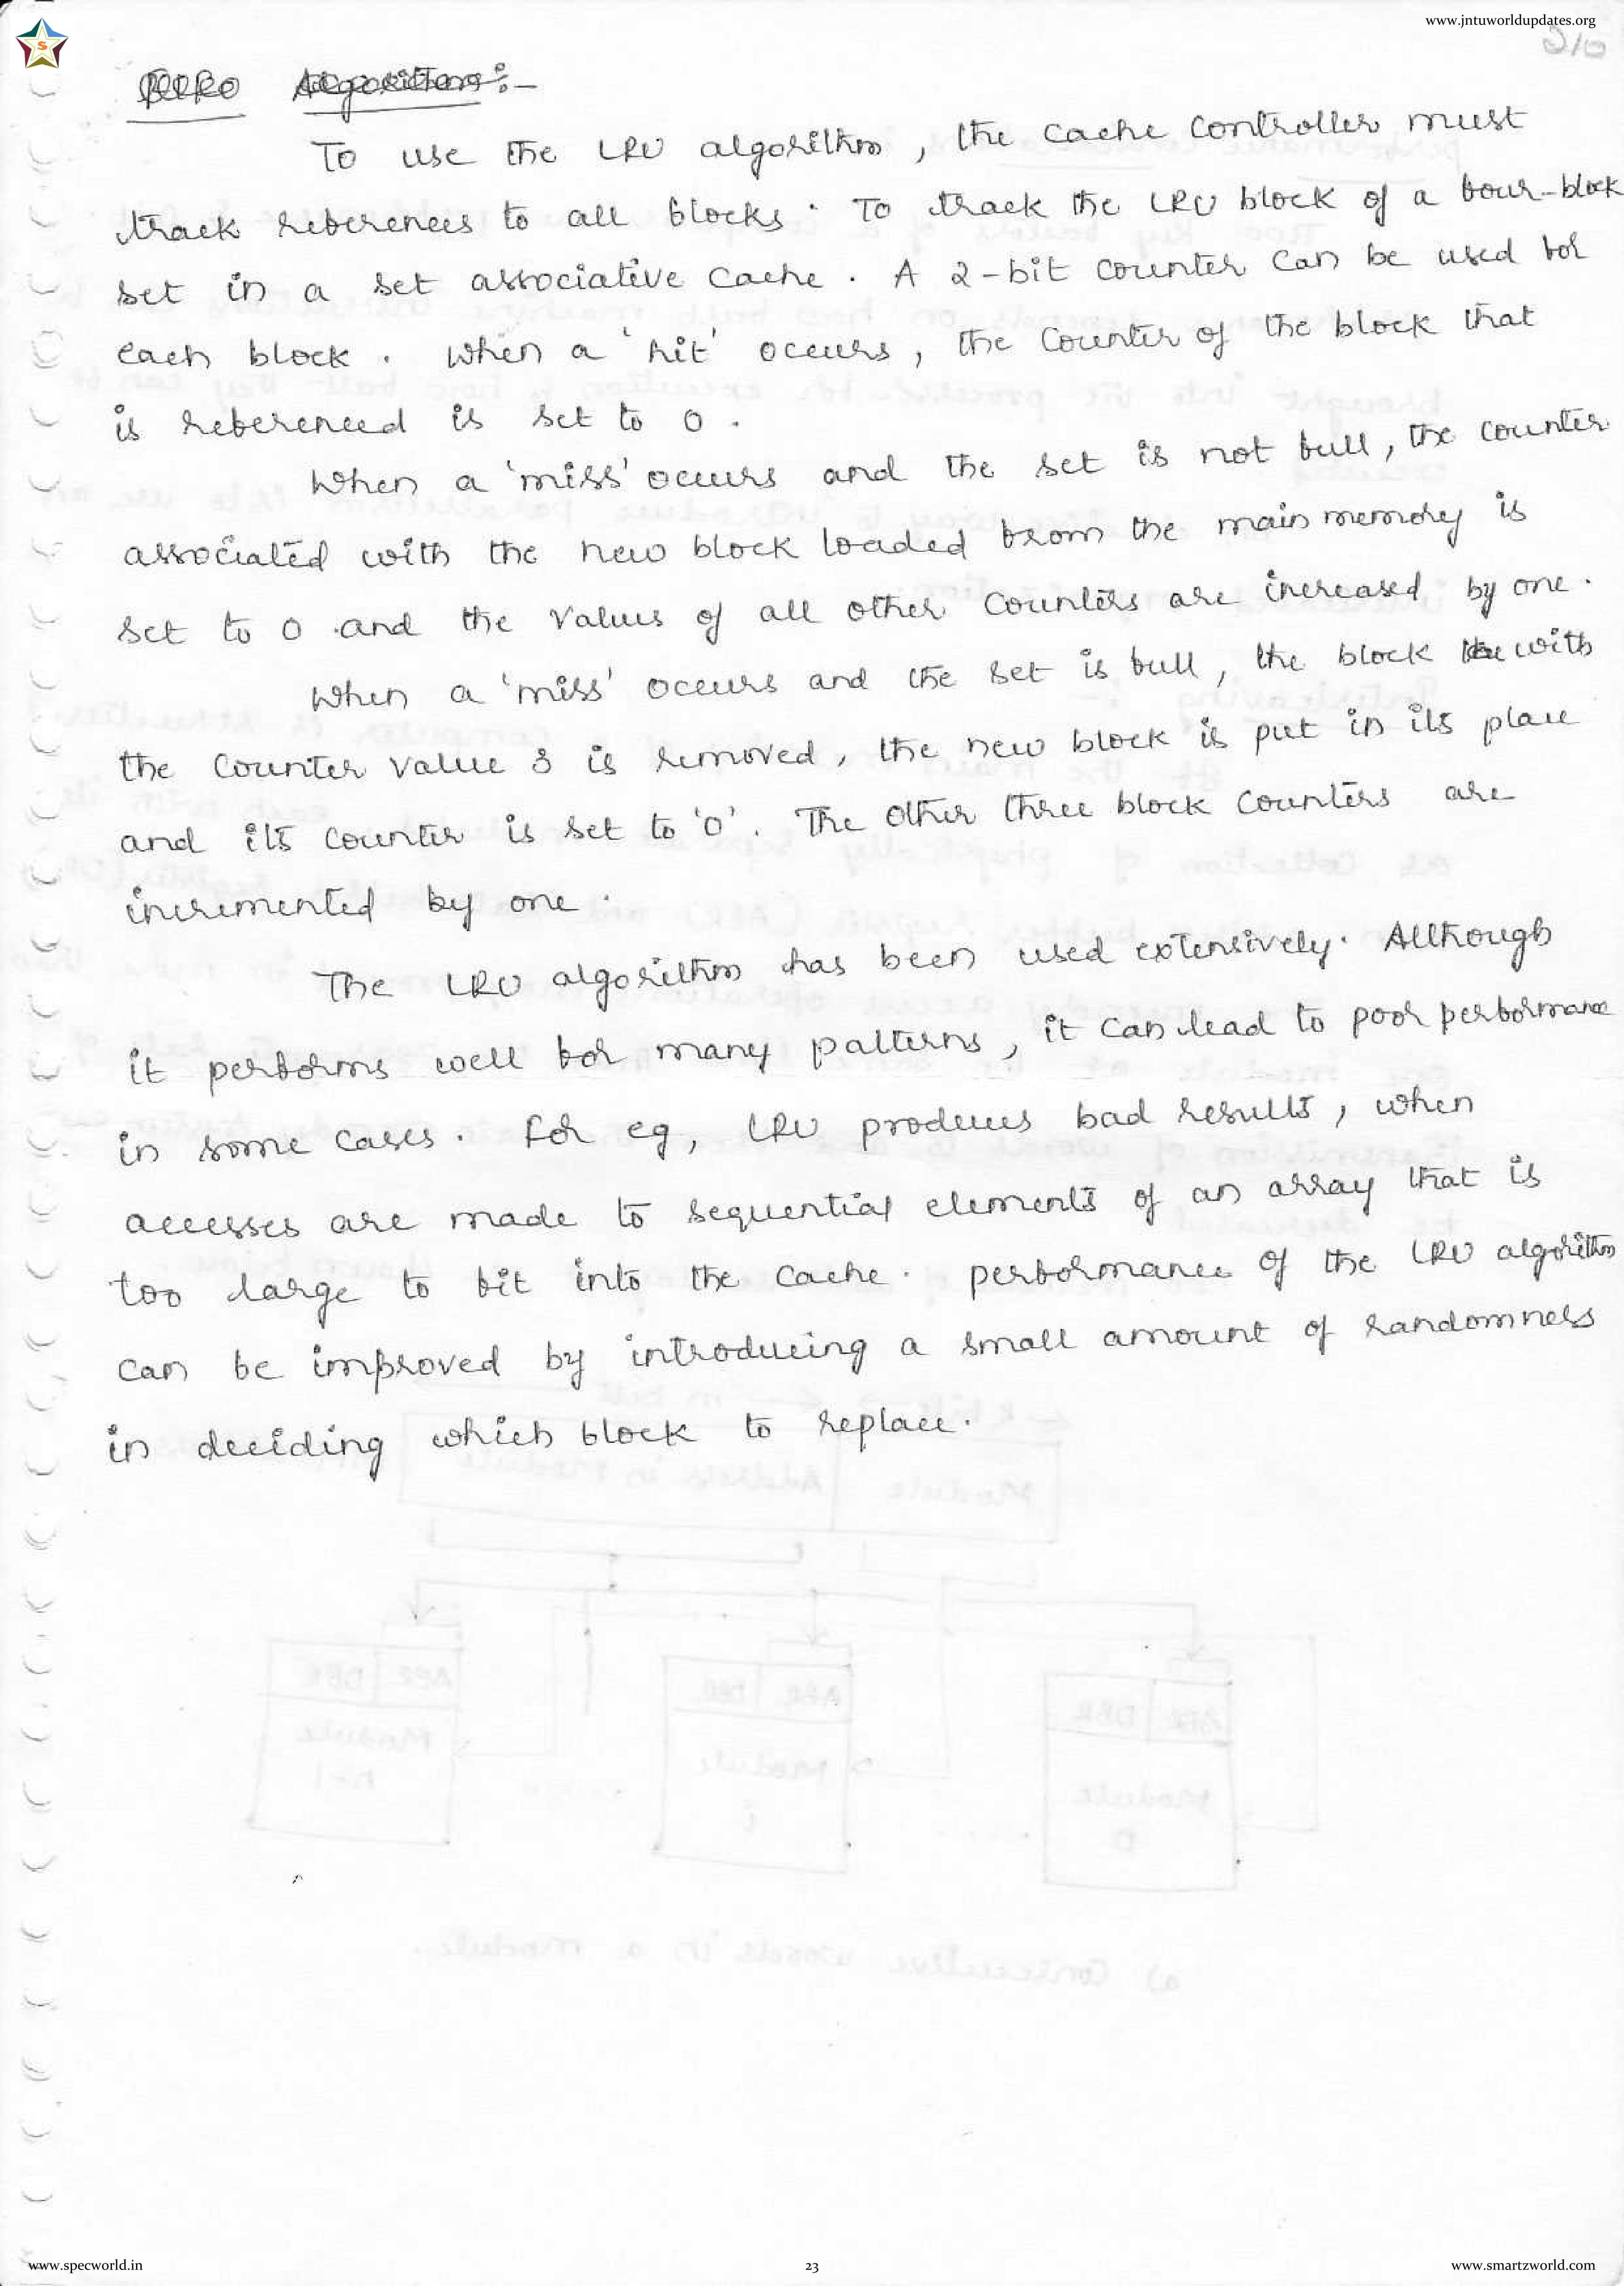 www.jntuworldupdates.org
S
210
Algorithm :-
To use the LRU algorithm , the cache controller must
track references to all blocks . To track the LRU block of a four-block
set in a set associative cache . A 2-bit counter can be used for
each block . When a 'hit' occurs , the counter of the block that
is referenced is set to 0 .
When a 'miss' occurs and the set is not full , the counter
associated with the new block loaded from the main memory is
set to 0 and the values of all other counters are increased by one .
When a 'miss' occurs and the set is full , the block with
the counter value 3 is removed , the new block is put in its place
and its counter is set to '0' . The other three block counters are
incremented by one .
The LRU algorithm has been used extensively . Although
it performs well for many patterns , it can lead to poor performance
in some cases . For eg , LRU produces bad results , when
accesses are made to sequential elements of an array that is
too large to fit into the cache . performance of the LRU algorithm
can be improved by introducing a small amount of randomness
in deciding which block to replace .
www.specworld.in
23
www.smartzworld.com